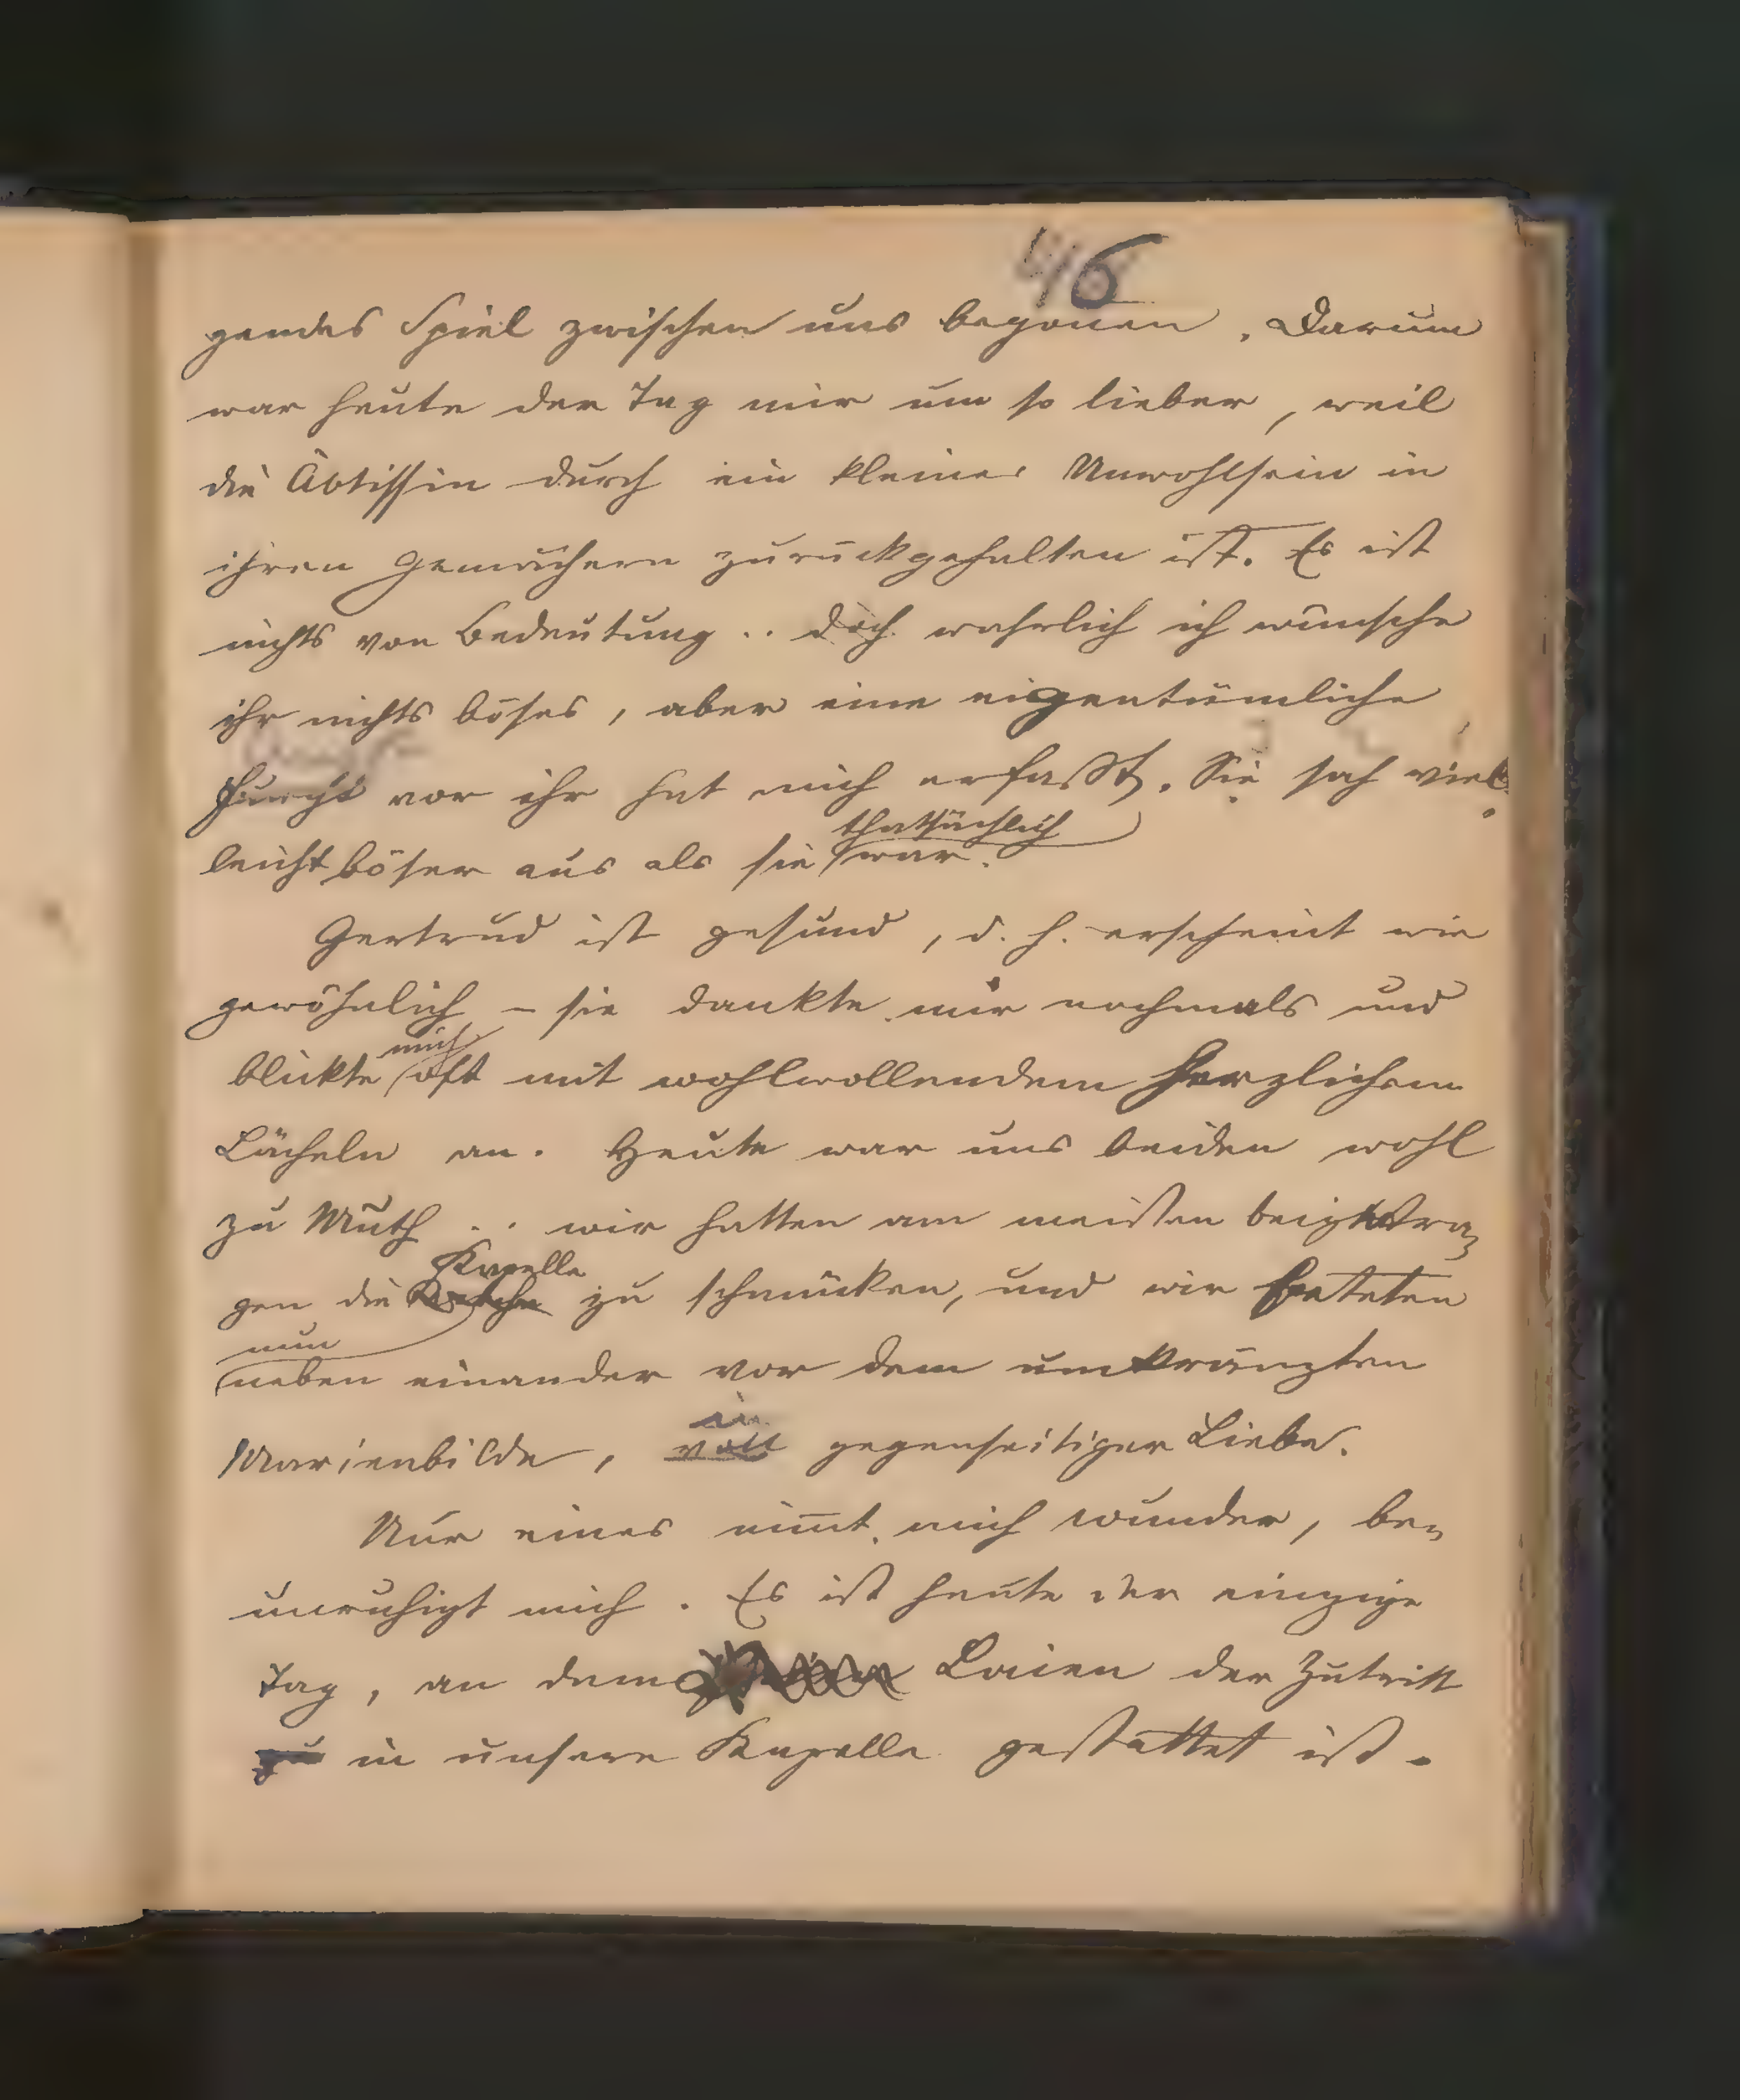 46
gendes Spiel zwischen uns begonnen. Darum
war heute der Tag mir um so lieber, weil
die Äbtissin durch ein kleines Unwohlsein in
ihren Gemächern zurückgehalten ist. Es ist
nichts von Bedeutung .. doch wahrlich ich wünsche
ihr nichts böses, aber eine eigentümliche
Furcht vor ihr hat mich erfaßt. Sie sah viel
thatsächlich
leicht böser aus als sie war.
Gertrud ist gesund, d. h. erscheint wie
gewöhnlich – sie dankte mir nochmals und
mich
blickte oft mit wohlwollendem herzlichem
Lächeln an. Heute war uns beiden wohl
zu Muth .. wir hatten am meisten beigetra-
Kapelle
gen die zu schmücken, und wir beteten
nun
neben einander vor dem umkränzten
in
Marienbilde, voll gegenseitiger Liebe.
Nur eines nimt mich wunder, be-
unruhigt mich. Es ist heute der einzige
Tag, an dem Laien der Zutritt
zu in unsere Kapelle gestattet ist.